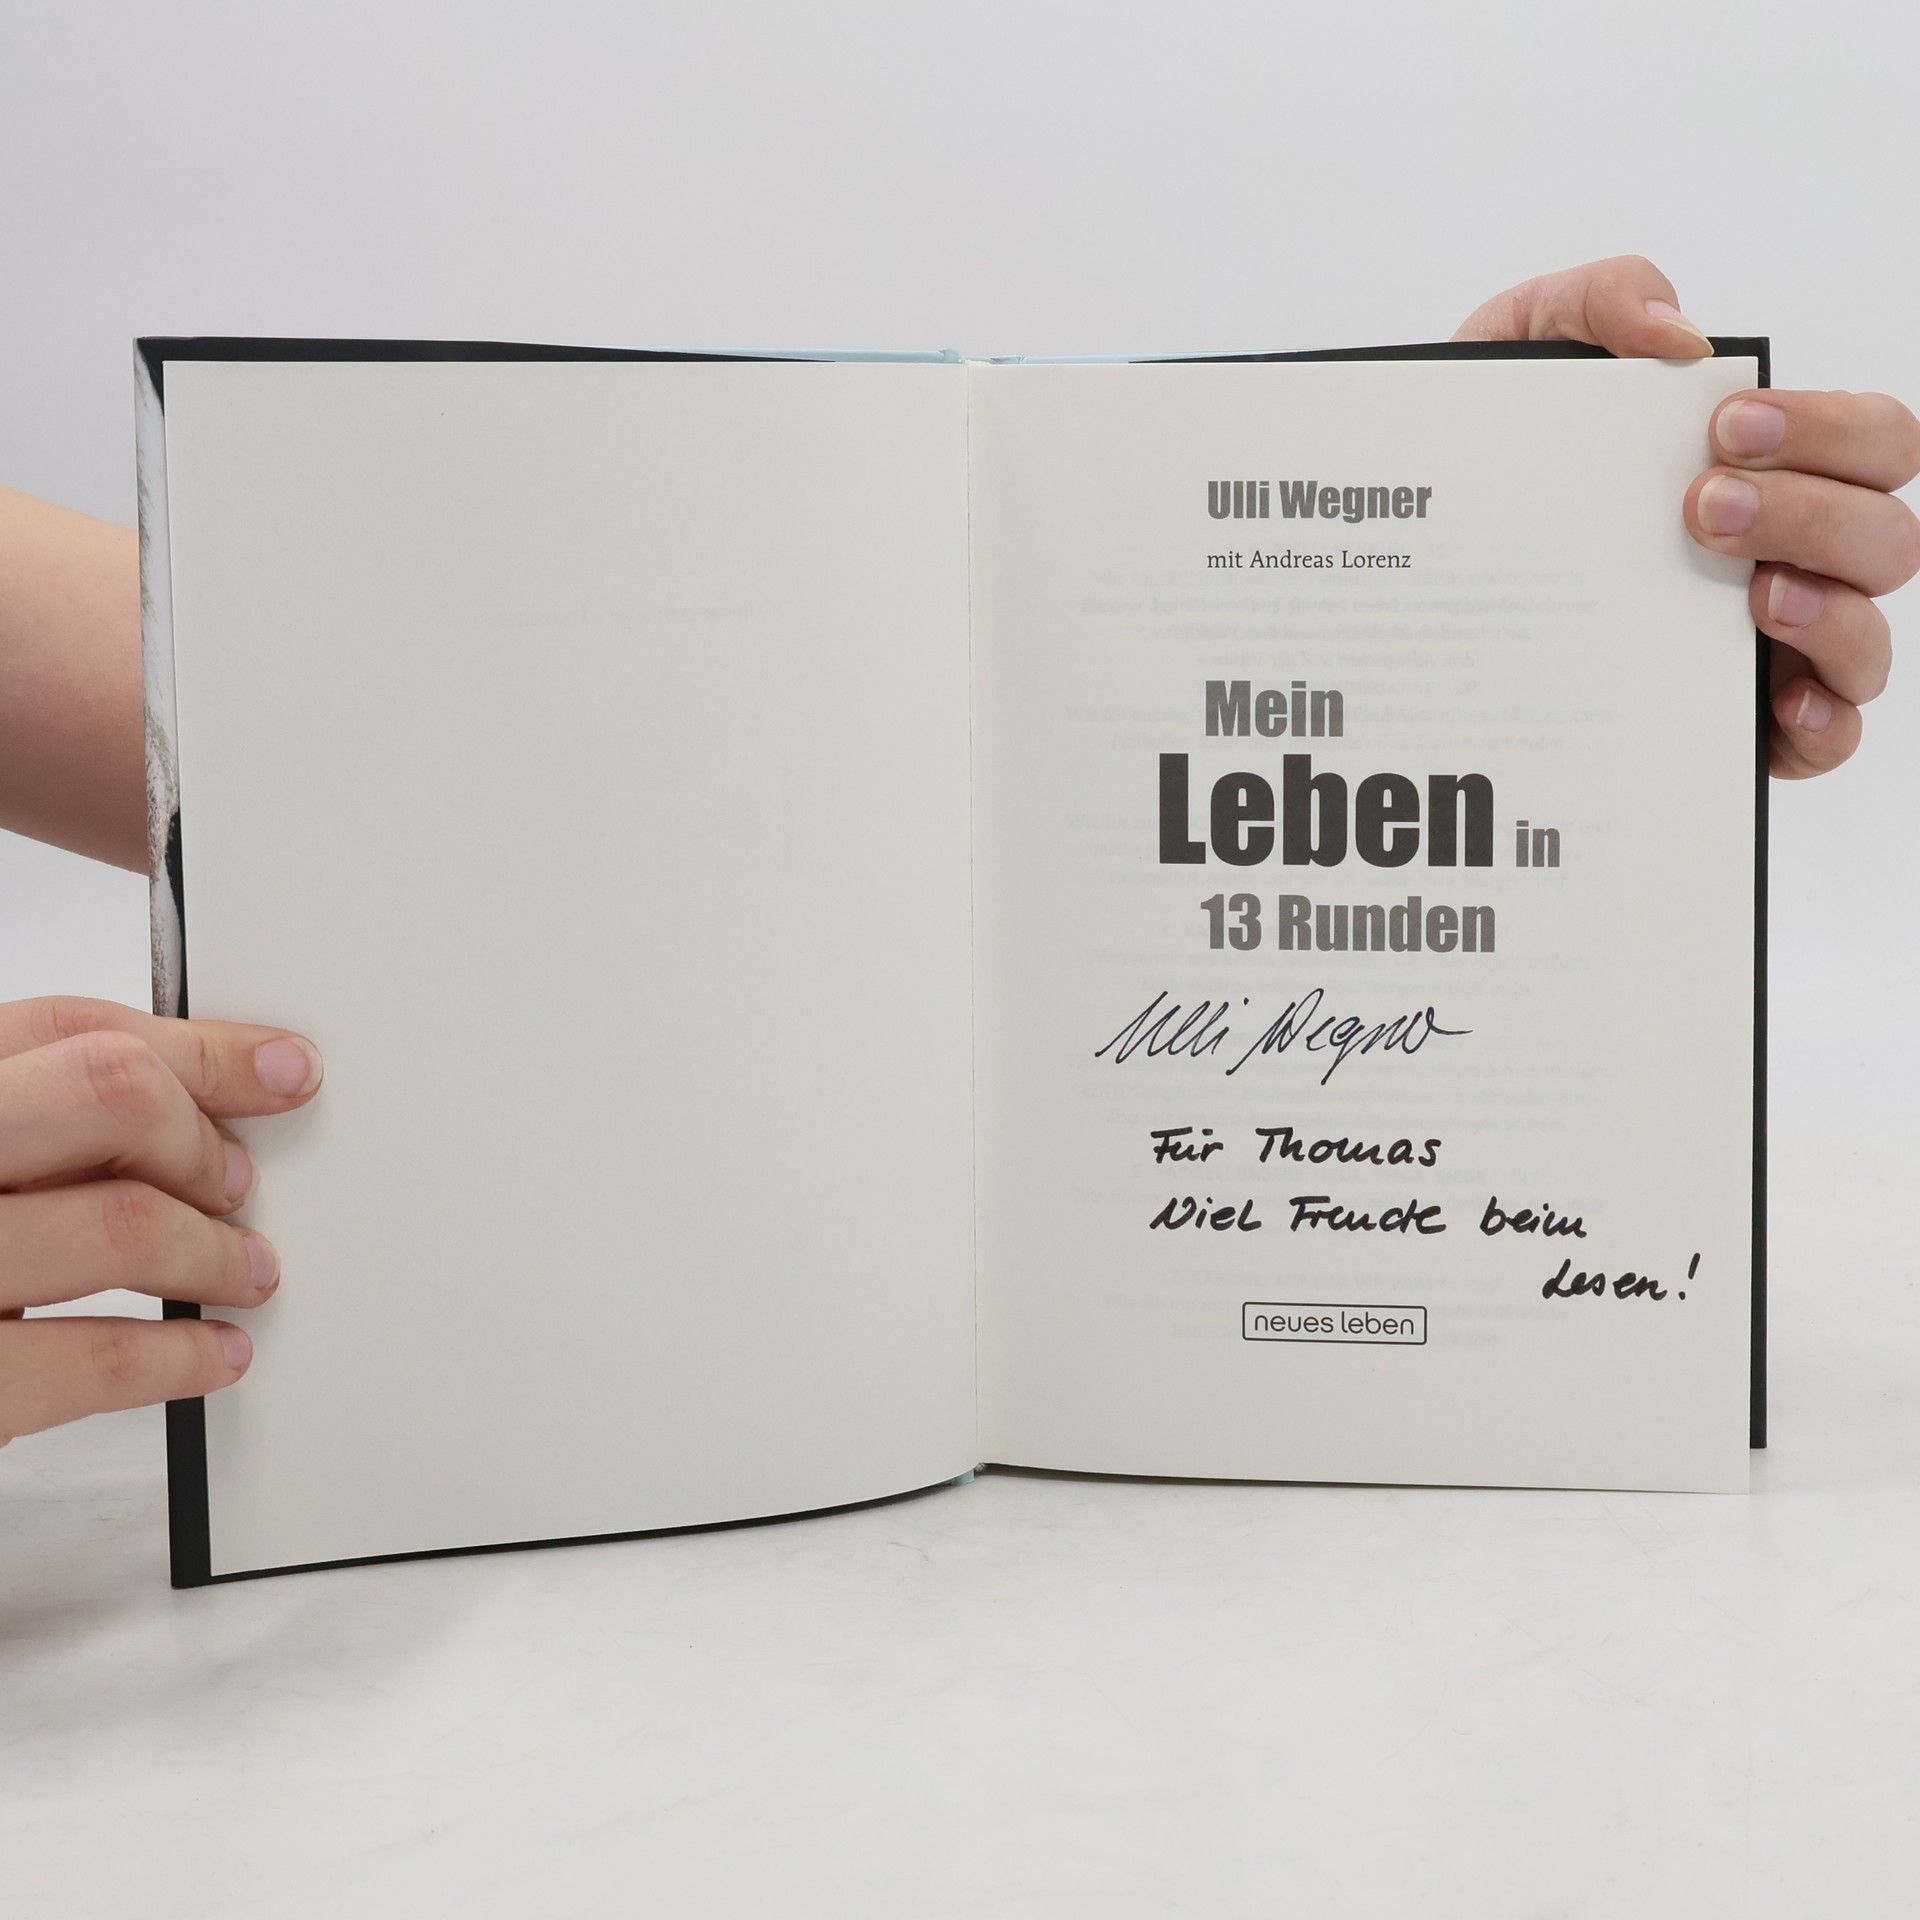 Ulli Wegner
mit Andreas Lorenz
Mein
Leben in
13 Runden
Ulli Wegner
Für Thomas
Viel Freude beim
Lesen!
neues leben